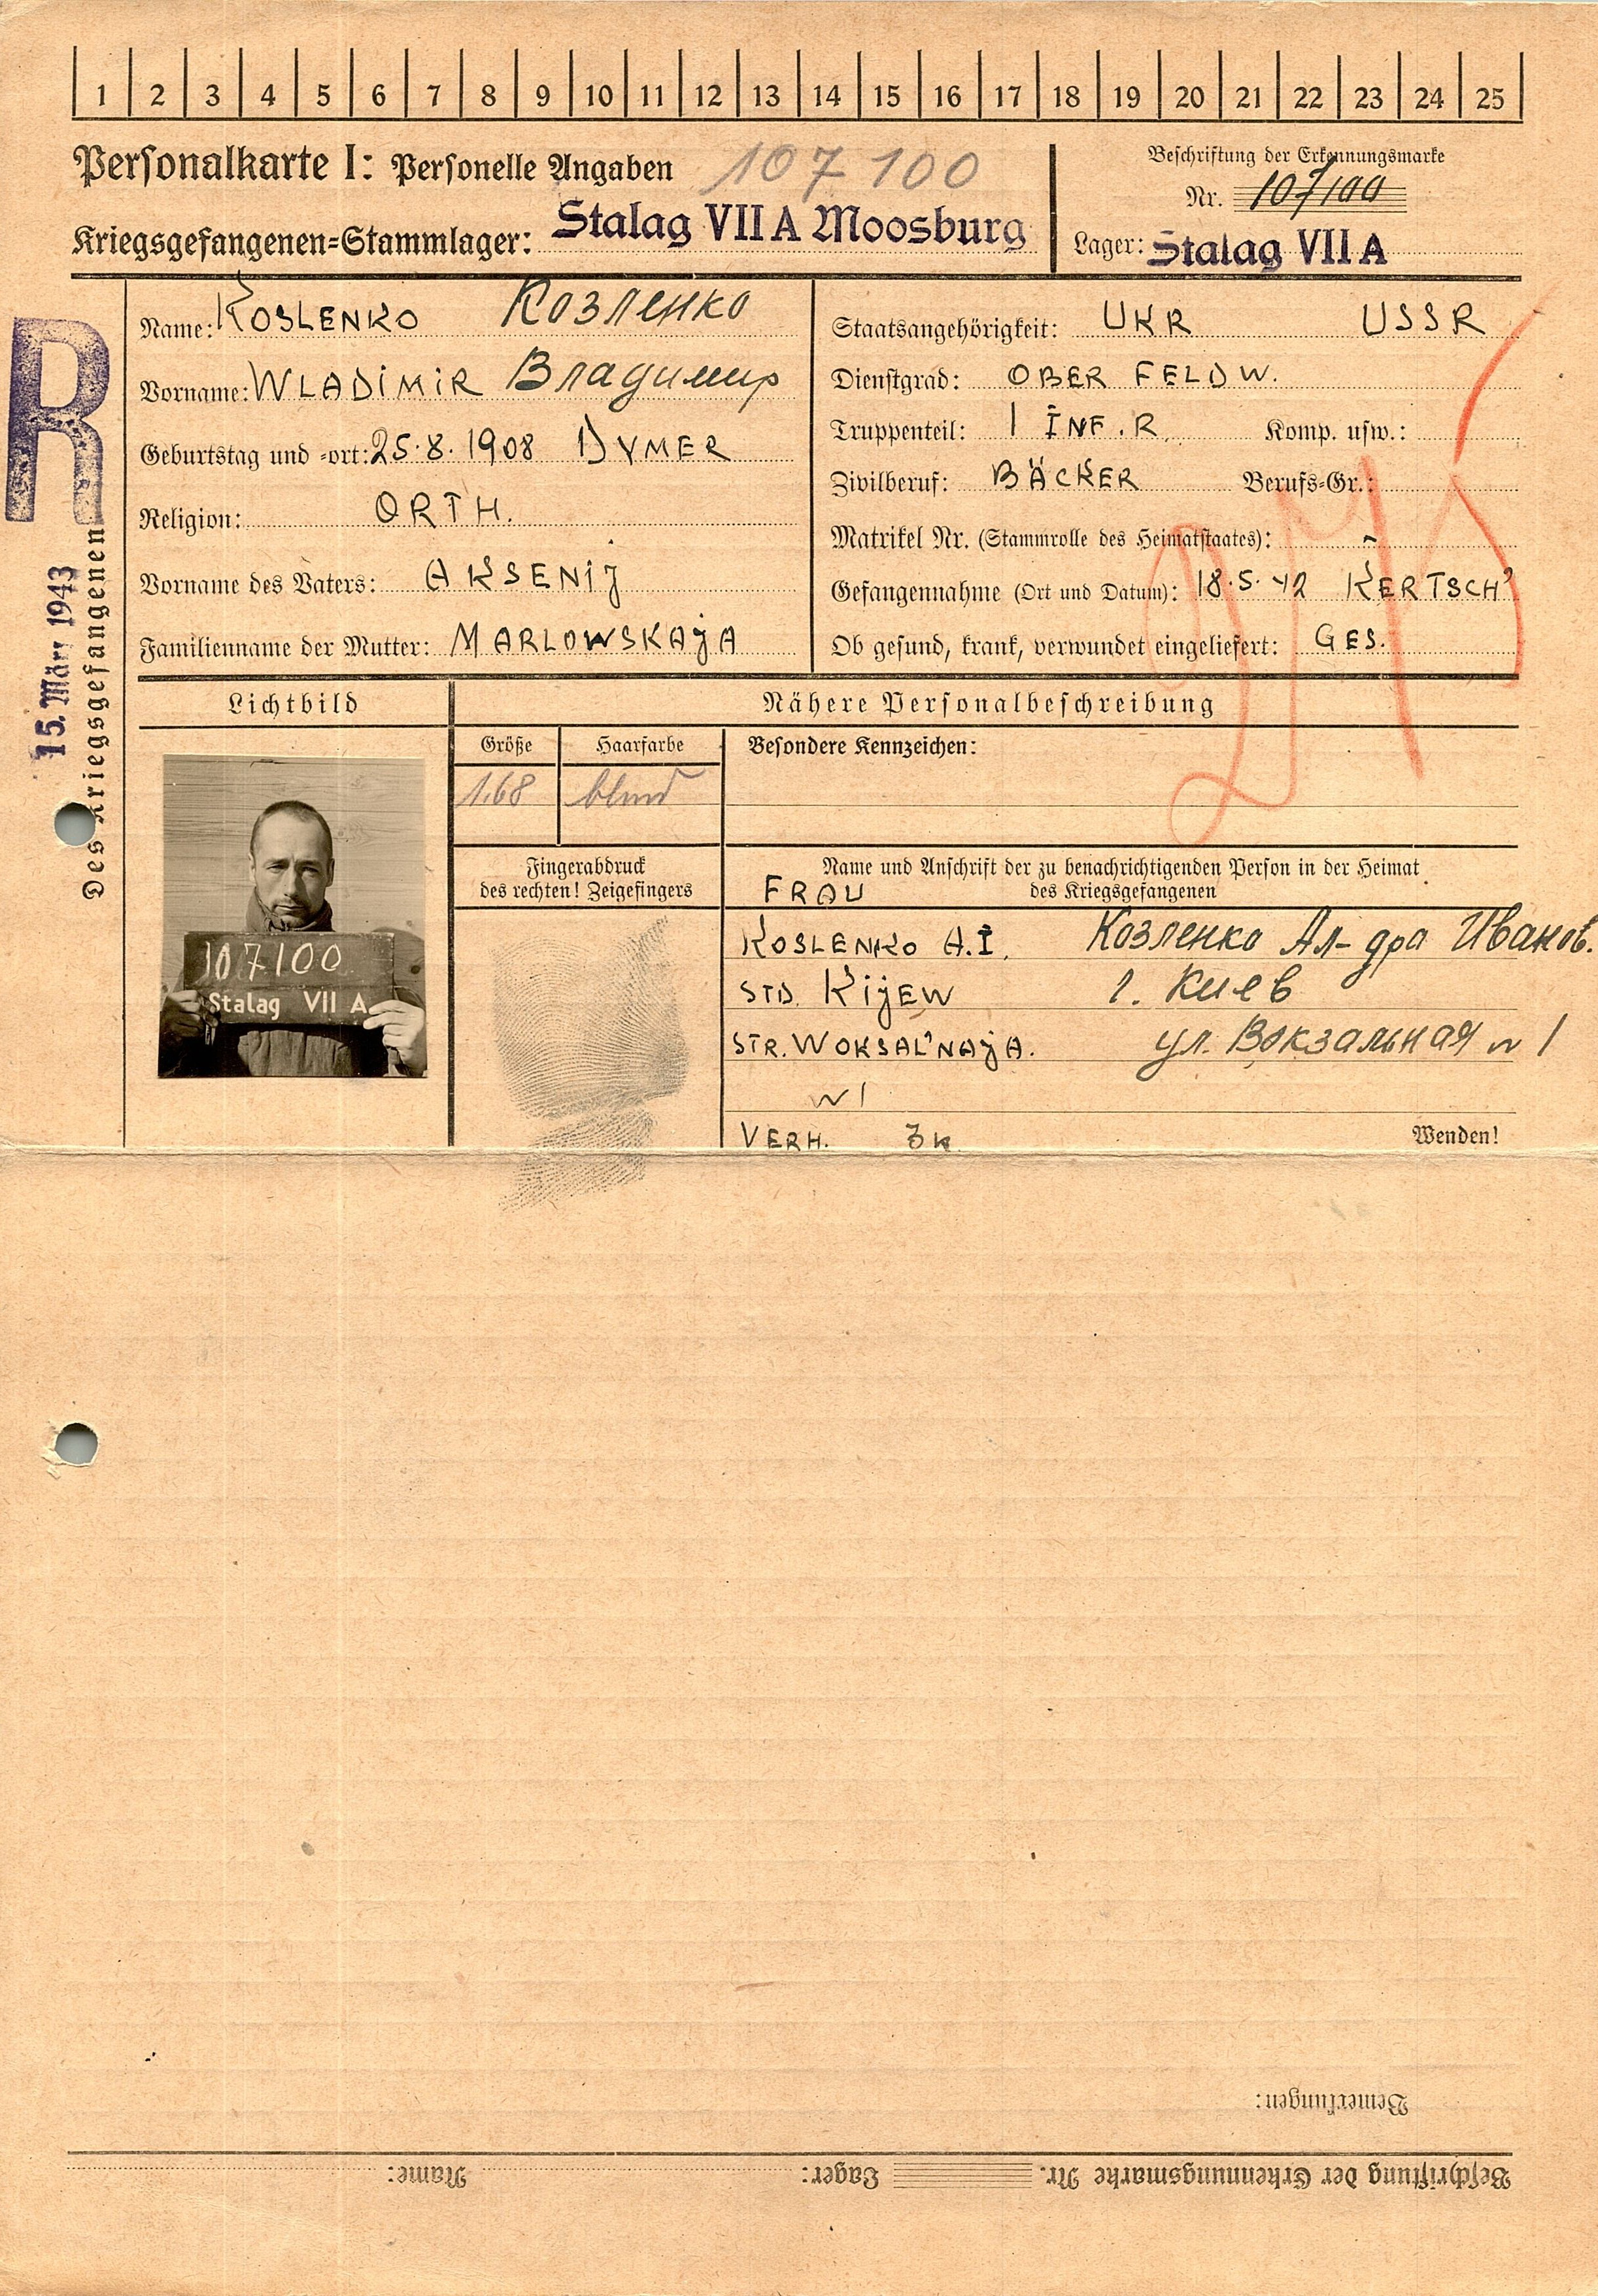 1 2 3 4 5 6 7 8 9 10 11 12 13 14 15 16 17 18 19 20 21 22 23 24 25
Personalkarte I: Personelle Angaben 107 100
Kriegsgefangenen-Stammlager: Stalag VII A Moosburg
Beschriftung der Erkennungsmarke
Nr. 107100
Lager: Stalag VII A
R
15. März 1943
Des Kriegsgefangenen
Name: KOSLENKO Козленко
Vorname: WLADIMIR Владимир
Geburtstag und -ort: 25.8.1908 DYMER
Religion: ORTH.
Vorname des Vaters: AKSENIJ
Familienname der Mutter: MARLOWSKAJA
Staatsangehörigkeit: UKR USSR
Dienstgrad: OBER FELDW.
Truppenteil: 1 INF. R. Komp. usw.:
Zivilberuf: BÄCKER Berufs-Gr.:
Matrikel Nr. (Stammrolle des Heimatstaates): -
Gefangennahme (Ort und Datum): 18.5.42 KERTSCH'
Ob gesund, krank, verwundet eingeliefert: GES.
Lichtbild
107100
Stalag VII A
Nähere Personalbeschreibung
Größe Haarfarbe Besondere Kennzeichen:
1.68 blond
Fingerabdruck
des rechten! Zeigefingers
Name und Anschrift der zu benachrichtigenden Person in der Heimat
des Kriegsgefangenen
FRAU
KOSLENKO A.I. Козленко Ал-дра Иванов.
STD. KIJEW г. Киев
STR. WOKSAL'NAJA. ул. Вокзальная N 1
N 1
VERH. 3 K
Wenden!
Bemerkungen:
Beschriftung der Erkennungsmarke Nr. Lager: Name: